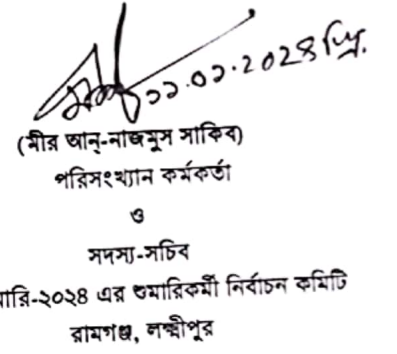 ২২.০২.২০২৪ খ্রি.
(মীর আন্-নাজমুস সাকিব)
পরিসংখ্যান কর্মকর্তা
ও
সদস্য-সচিব
মারি-২০২৪ এর শুমারিকর্মী নির্বাচন কমিটি
রামগঞ্জ, লক্ষ্মীপুর